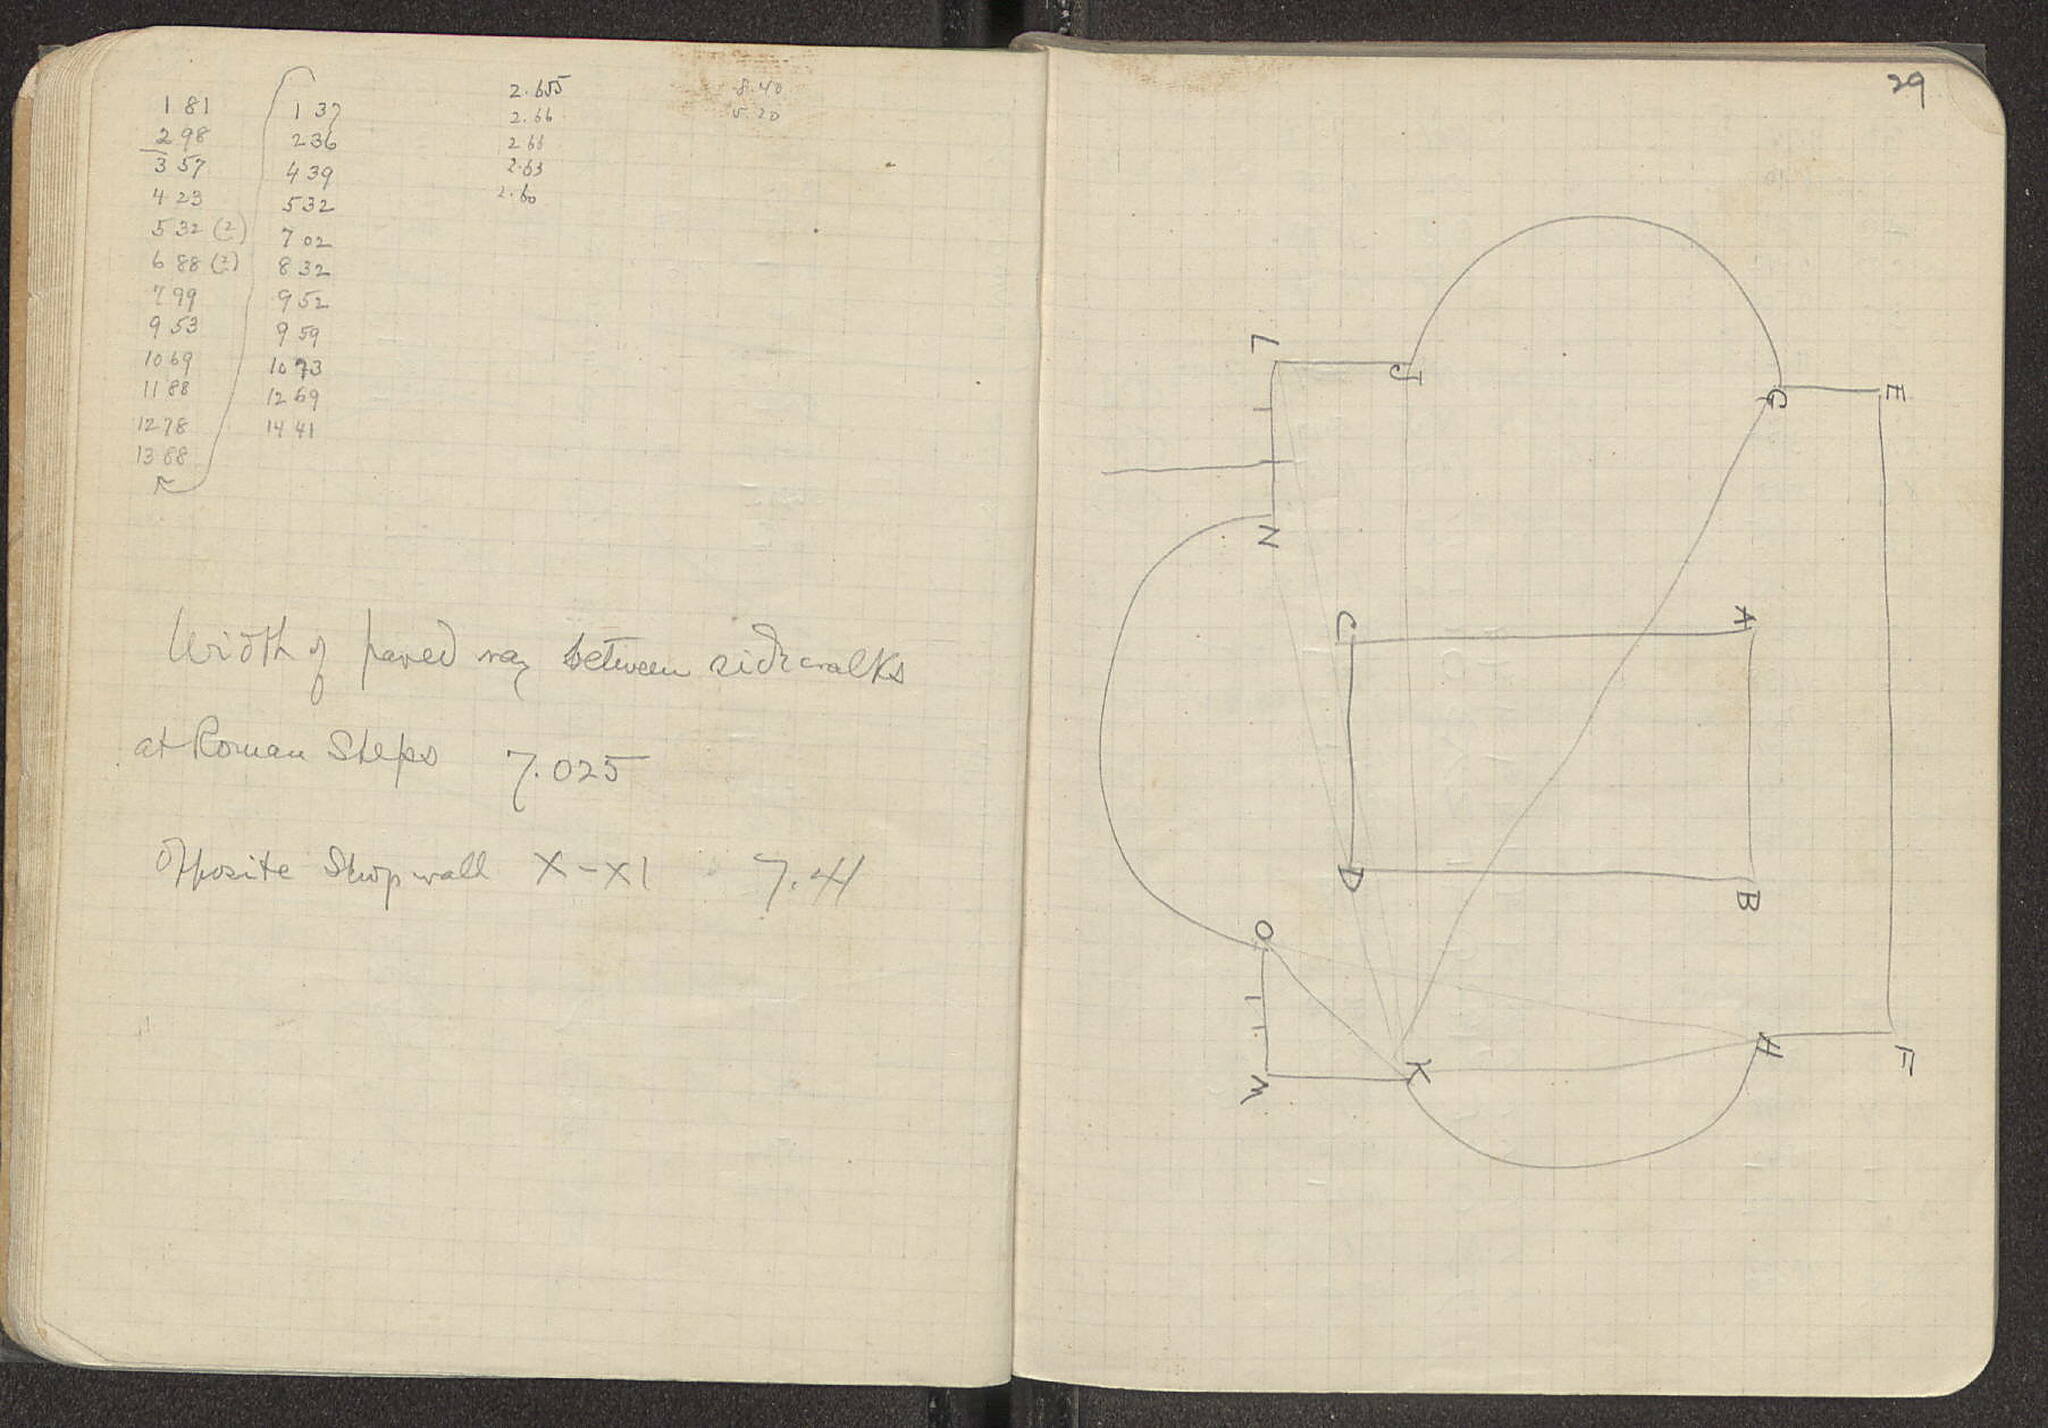 1 81
2 98
3 57
4 23
5 32 (2)
6 88 (2)
7 99
9 53
10 69
11 88
12 78
13 88
1 37
2 36
4 39
5 32
7 02
8 32
9 52
9 59
10 73
12 69
14 41
2.655
2.66
2 66
2.63
2.60
8.40
5.20
Width of paved way between sidewalks
at Roman Steps 7.025
Opposite Shop wall X-XI 7.41
29
L
J
G
E
N
C
A
D
B
O
K
H
F
M